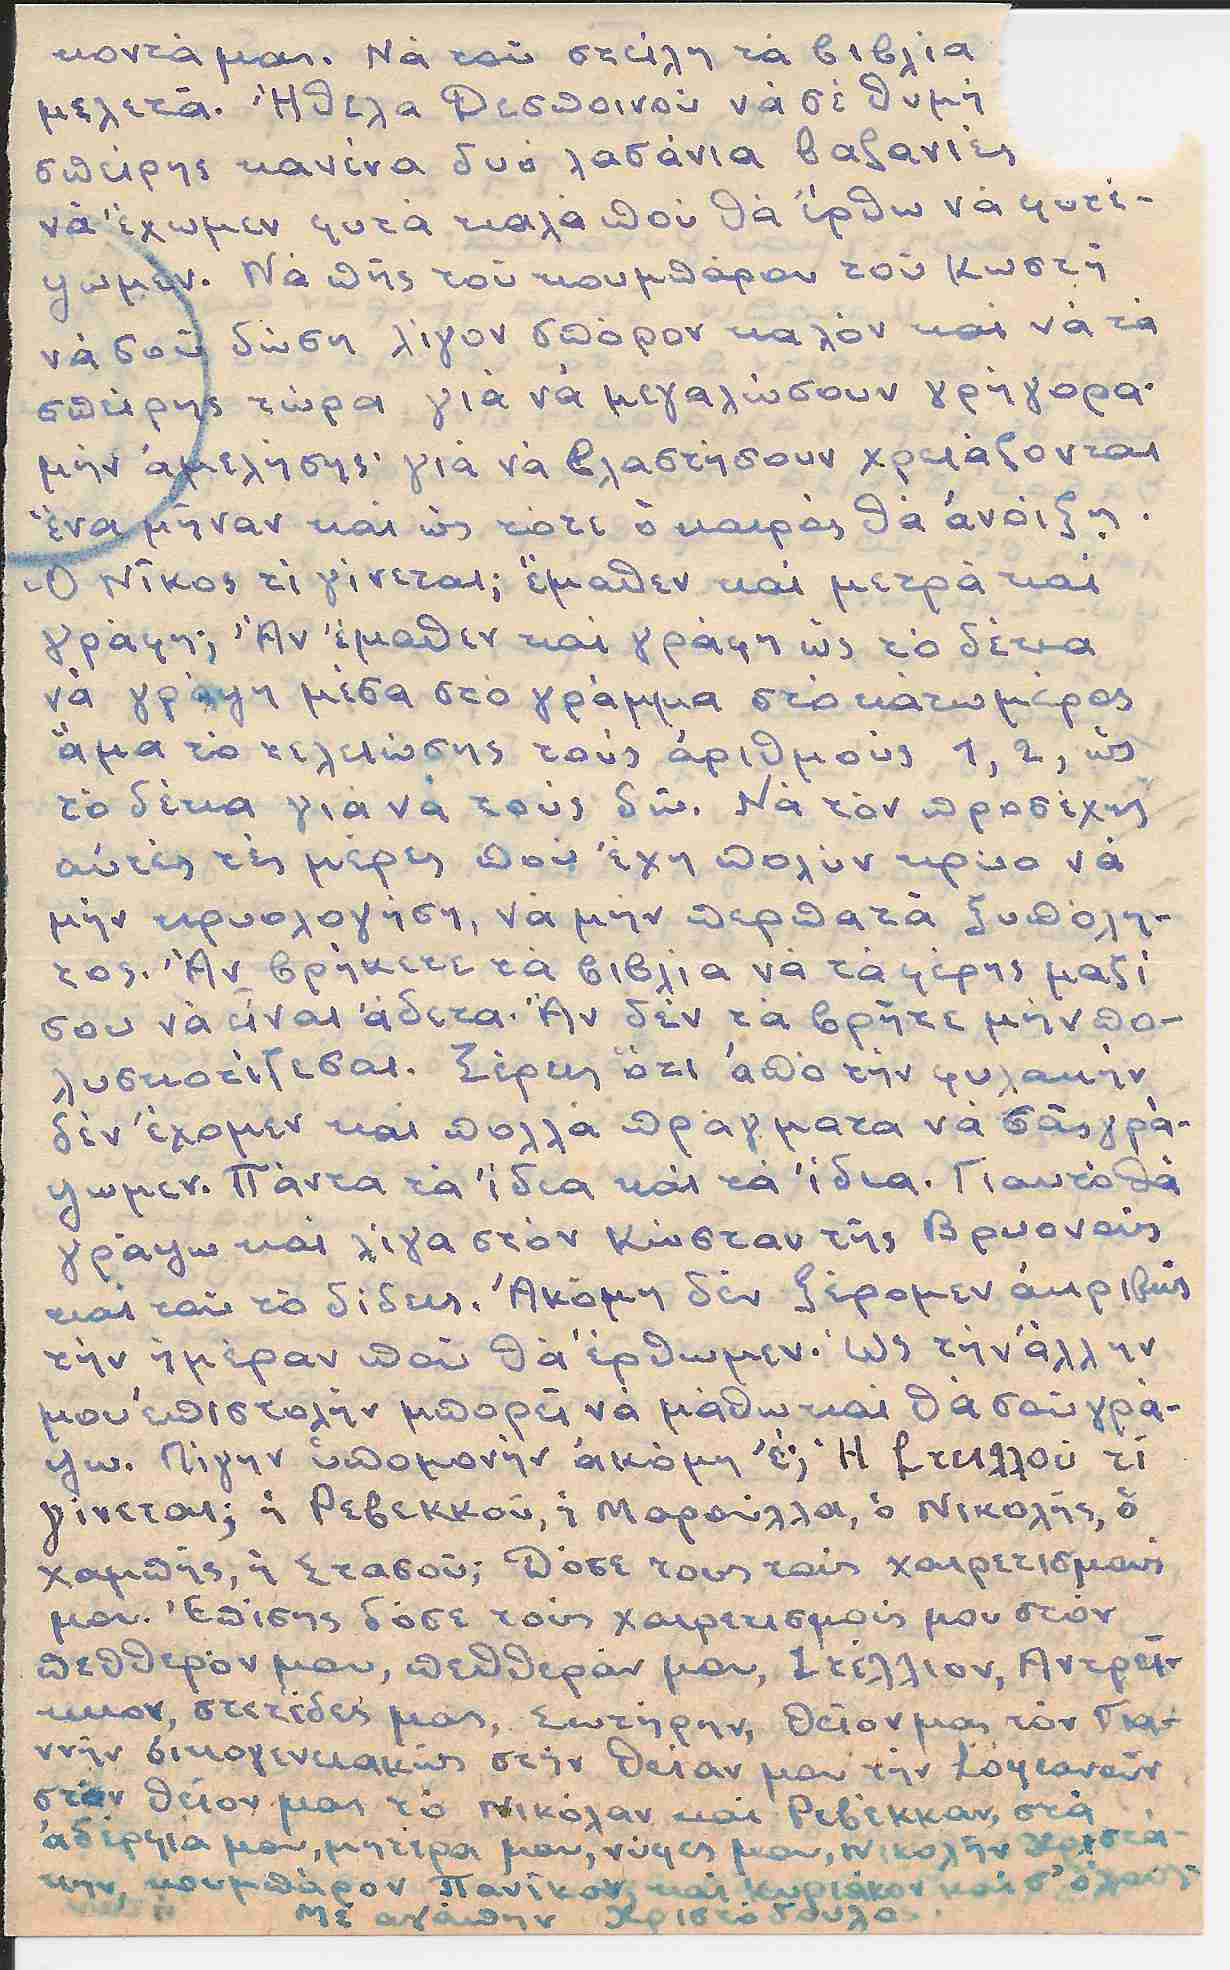 κοντά μας. Νά τοῦ στείλη τά βιβλία
μελετᾶ. Ἤθελα Δεσποινού νά σέ θυμή
σπείρης κανένα δυό λασάνια βαζανιές
νά ἔχωμεν φυτά καλά πού θά ἔρθω νά φυτέ-
ψωμεν. Νά πῆς τοῦ κουμπάρου τοῦ Κωστῆ
νά σοῦ δώση λίγον σπόρον καλόν καί νά τά
σπείρης τώρα γιά νά μεγαλώσουν γρήγορα.
μήν ἀμελήσης· γιά νά βλαστήσουν χρειάζονται
ἕνα μῆναν καί ὡς τότε ὁ καιρός θά ἀνοίξη.
Ὁ Νῖκος τί γίνεται; Ἔμαθεν καί μετρᾶ καί
γράφη; Ἄν ἔμαθεν καί γράφη ὡς τό δέκα
νά γράψη μέσα στό γράμμα στό κάτω μέρος
ἅμα τό τελειώσης τούς ἀριθμούς 1, 2, ὡς
τό δέκα γιά νά τούς δῶ. Νά τόν προσέχης
αὐτές τές μέρες πού ἔχη πολύν κρύο νά
μήν κρυολογήση, νά μήν περπατᾶ ξυπόλη-
τος. Ἄν βρήκετε τά βιβλία νά τά φέρης μαζί
σου νά εἶναι ἄδετα. Ἄν δέν τά βρῆτε μήν πο-
λυσκοτίζεσαι. Ξέρεις ὅτι ἀπό τήν φυλακήν
δέν ἔχομεν καί πολλά πράγματα νά σᾶς γρά-
ψωμεν. Πάντα τά ἴδια καί τά ἴδια. Γιαυτό θά
γράψω καί λίγα στόν Κώσταν τῆς Βρυονοῦς
καί τοῦ τό δίδεις. Ἀκόμη δέν ξέρομεν ἀκριβῶς
τήν ἡμέραν πού θά ἔρθωμεν. Ὡς τήν ἄλλην
μου ἐπιστολήν μπορεῖ νά μάθω καί θά σοῦ γρά-
ψω. Λίγην ὑπομονήν ἀκόμη ἔ; Ἡ Στελλού τί
γίνεται; ἡ Ρεβεκκού, ἡ Μαρούλλα, ὁ Νικολής, ὁ
χαμπῆς, ἡ Στασοῦ; Δόσε τους τούς χαιρετισμούς
μου. Ἐπίσης δόσε τούς χαιρετισμούς μου στόν
πεθθερόν μου, πεθθεράν μου, Στέλλιον, Αντρεί-
κκον, στετέδες μας, Σωτήρην, θεῖον μας τόν Για-
ννήν οἰκογενειακῶς στήν θείαν μου τήν
στόν θεῖον μας τό Νικόλαν καί Ρεβέκκαν, στά
ἀδέρφια μου, μητέρα μου, νύφες μου, Νικολήν Χριστά-
κην, κουμπάρον Πανῖκον, καί Κυριάκον καί σ' ὅλους
Μέ αγάπην Χριστόδουλος.